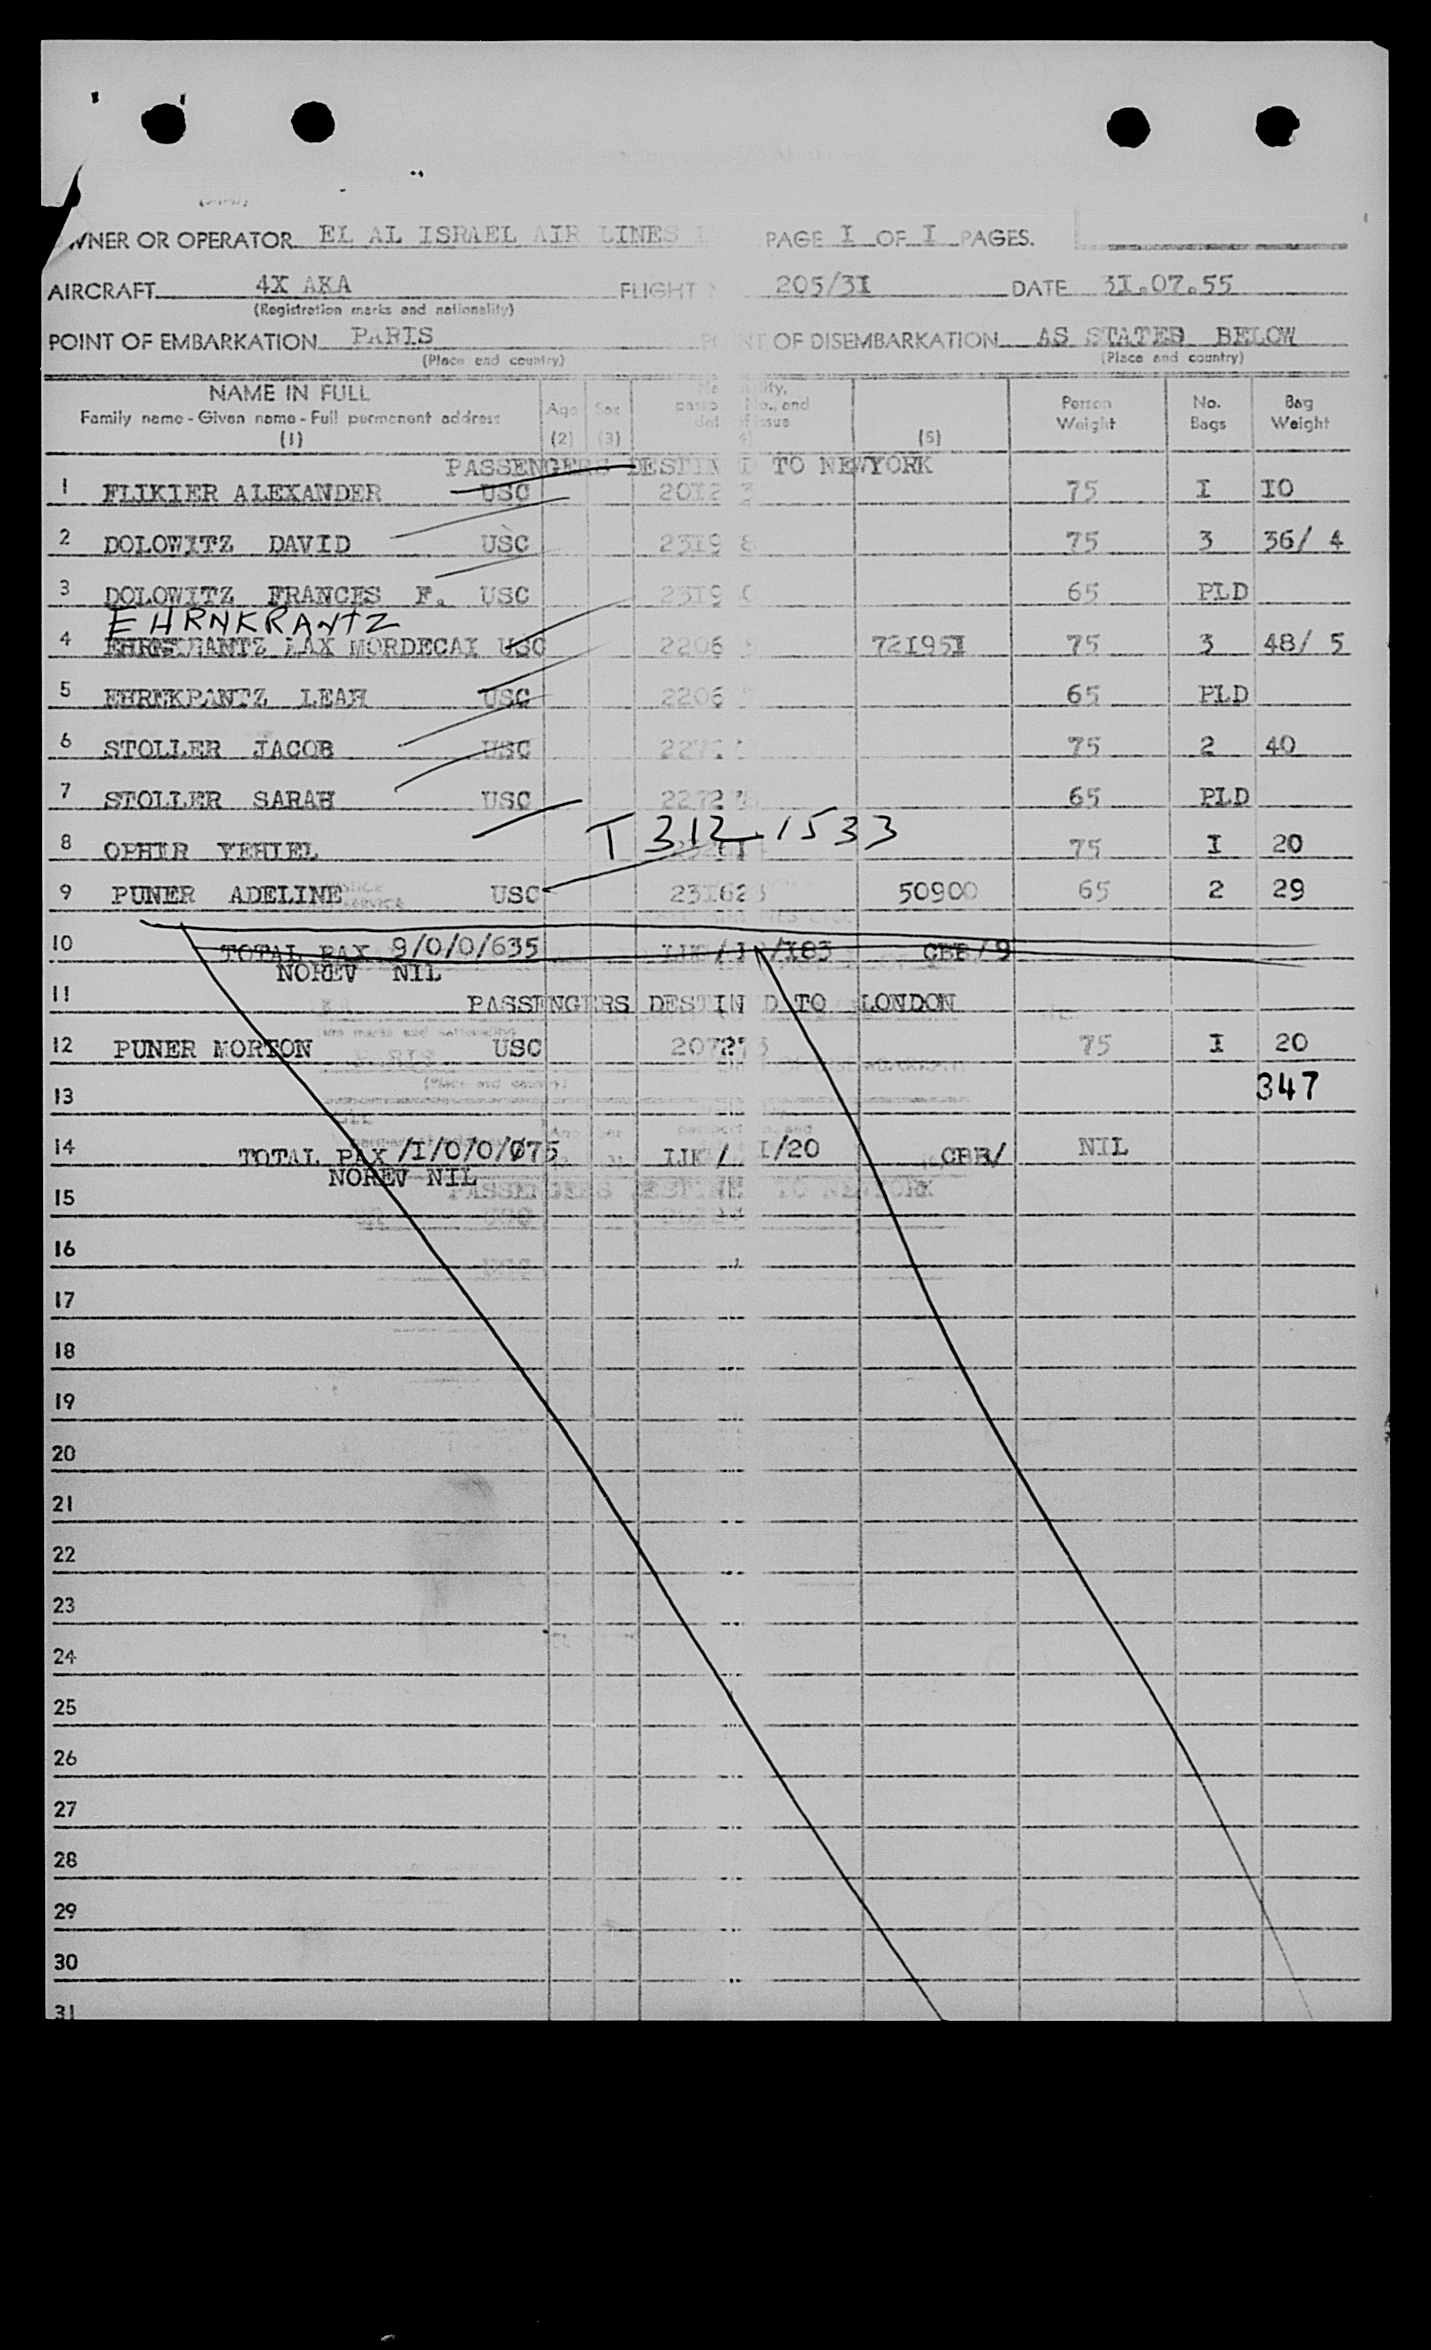 OWNER OR OPERATOR EL AL ISRAEL AIR LINES PAGE I OF I PAGES.
AIRCRAFT 4X AKA FLIGHT 205/3I DATE 3I.07.55
(Registration marks and nationality)
POINT OF EMBARKATION PARIS POINT OF DISEMBARKATION AS STATED BELOW
(Place and country) (Place and country)
NAME IN FULL
Family name - Given name - Full permanent address Age Sex Person Weight No. Bags Bag Weight
(1) (2) (3) (5)
PASSENGERS DESTIN D TO NEWYORK
1 FLIKIER ALEXANDER USC 2012 75 I IO
2 DOLOWITZ DAVID USC 2319 8 75 3 36/ 4
3 DOLOWITZ FRANCES F. USC 2319 65 PLD
EHRNKRANTZ
4 MAX MORDECAI USC 2206 72I95I 75 3 48/ 5
5 EHRNKRANTZ LEAH USC 2206 65 PLD
6 STOLLER JACOB USC 75 2 40
7 STOLLER SARAH USC 2272 65 PLD
T 312 1533
8 OPHIR YEHIEL 75 I 20
9 PUNER ADELINE USC 23I62 50900 65 2 29
10 TOTAL PAX 9/0/0/635 /I83 CBB/9
NOREV NIL
11 PASSENGERS DESTIN D TO LONDON
12 PUNER MORTON USC 2072 75 I 20
347
13
14 TOTAL PAX /I/0/0/075 I/20 CBB/ NIL
NOREV NIL
15
16
17
18
19
20
21
22
23
24
25
26
27
28
29
30
31